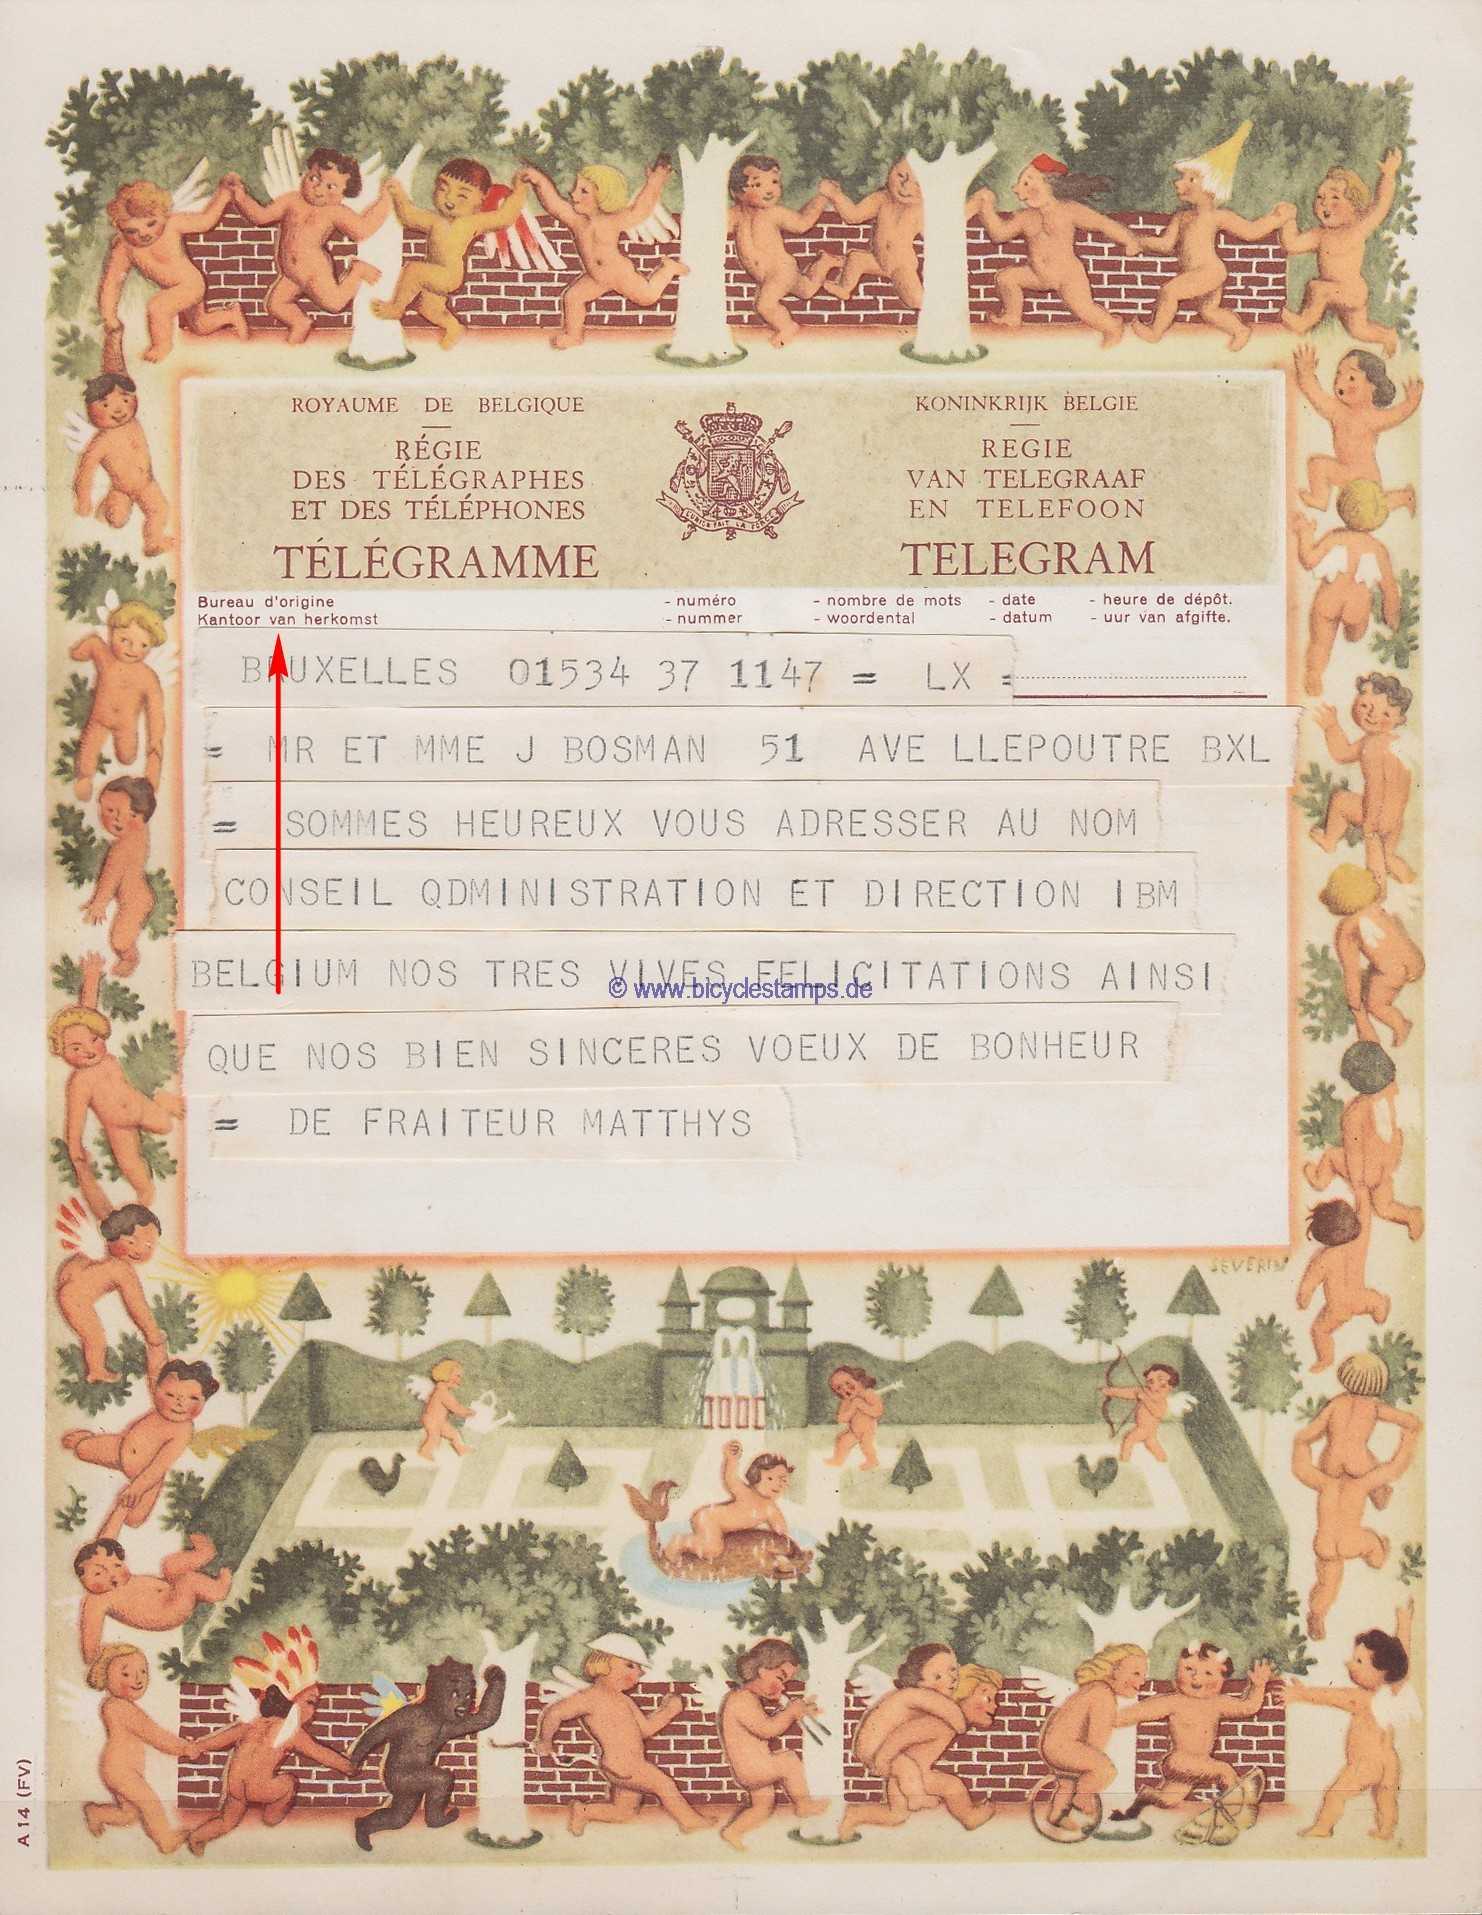 ROYAUME DE BELGIQUE
RÉGIE
DES TÉLÉGRAPHES
ET DES TÉLÉPHONES
TÉLÉGRAMME
L'UNION FAIT LA FORCE
KONINKRIJK BELGIE
REGIE
VAN TELEGRAAF
EN TELEFOON
TELEGRAM
Bureau d'origine - numéro - nombre de mots - date - heure de dépôt.
Kantoor van herkomst - nummer - woordental - datum - uur van afgifte.
BRUXELLES 01534 37 1147 = LX =
= MR ET MME J BOSMAN 51 AVE LLEPOUTRE BXL
= SOMMES HEUREUX VOUS ADRESSER AU NOM
CONSEIL QDMINISTRATION ET DIRECTION IBM
BELGIUM NOS TRES VIVES FELICITATIONS AINSI
© www.bicyclestamps.de
QUE NOS BIEN SINCERES VOEUX DE BONHEUR
= DE FRAITEUR MATTHYS
SEVERIN
A 14 (FV)